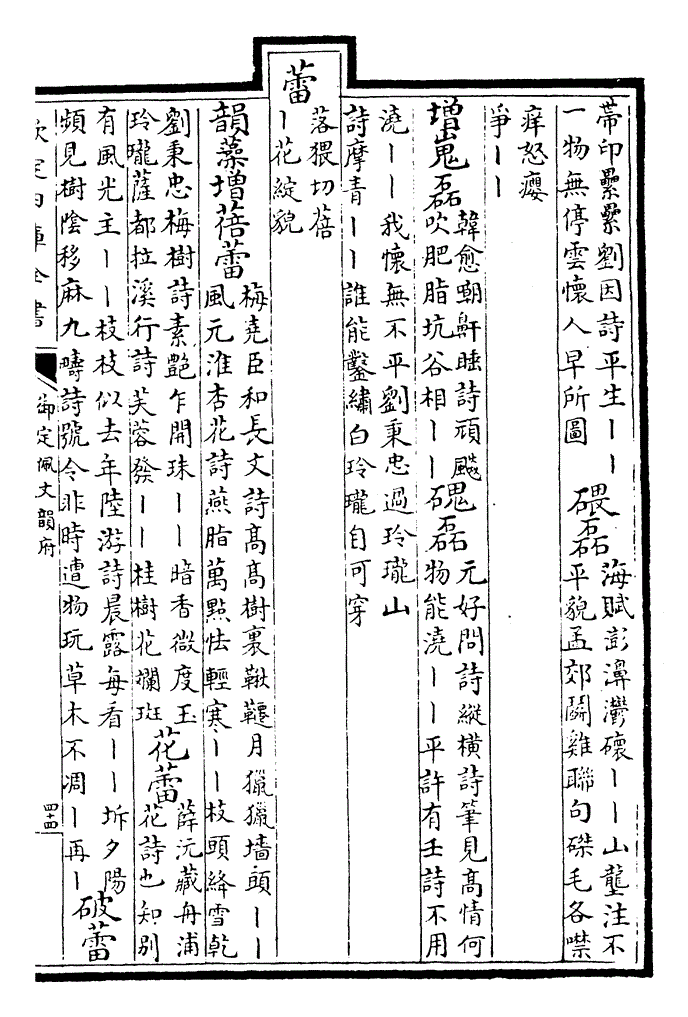 蒂印纍纍劉因詩平生丨丨
一物無停雲懷人早所圖
碨磊
海賦澎濞灪礧丨丨山壟注不
平貌孟郊鬭雞聯句磔毛各噤
痒怒癭
爭丨丨
增嵬磊
韓愈嘲鼾睡詩頑飇
吹肥脂坑谷相丨丨
磈磊
元好問詩縱橫詩筆見高情何
物能澆丨丨平許有壬詩不用
澆丨丨我懷無不平劉秉忠過玲瓏山
詩摩青丨丨誰能鑿繡白玲瓏自可穿
蕾
落猥切蓓
丨花綻貌
韻藻增蓓蕾
梅堯臣和長文詩高高樹裏鞦韆月獵獵墻頭丨丨
風元淮杏花詩燕脂萬點怯輕寒丨丨枝頭絳雪乾
劉秉忠梅樹詩素艷乍開珠丨丨暗香微度玉
玲瓏薩都拉溪行詩芙蓉發丨丨桂樹花斕斑
花蕾
薛沅藏舟浦
花詩也知別
有風光主丨丨枝枝似去年陸游詩晨露每看丨丨坼夕陽
頻見樹陰移麻九疇詩號令非時遭物玩草木不凋丨再丨
破蕾
欽定四庫全書
御定佩文韻府
四十四